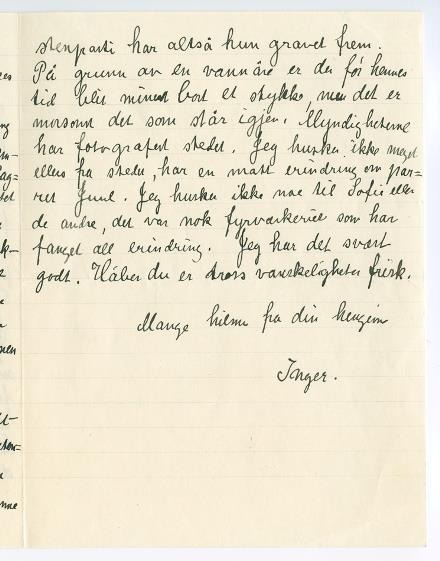 stenparti har altså hun gravet frem.
På grunn av en vannåre er der før hennes
tid blit minert bort et stykke, men det er
morsomt det som står igjen. Myndigheterne
har fotografert stedet. Jeg husker ikke meget
ellers fra stedet, har en matt erindring om par=
ret Juul. Jeg husker ikke noe til Sofie eller
de andre, det var nok fyrverkeriet som har
fanget all erindring. Jeg har det svært
godt. Håber du er trass vanskeligheter frisk.
Mange hilsen fra din hengivne
Inger.